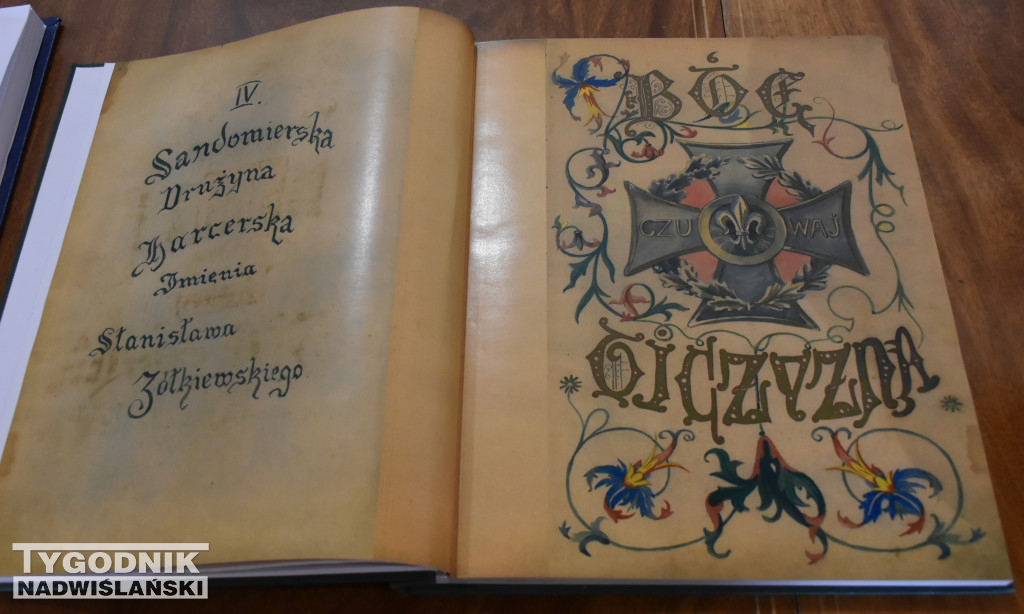 IV.
Sandomierska
Drużyna
Harcerska
Imienia
Stanisława
Żółkiewskiego
6
BÓG
CZU WAJ
OJCZYZNA
TYGODNIK
NADWIŚLAŃSKI